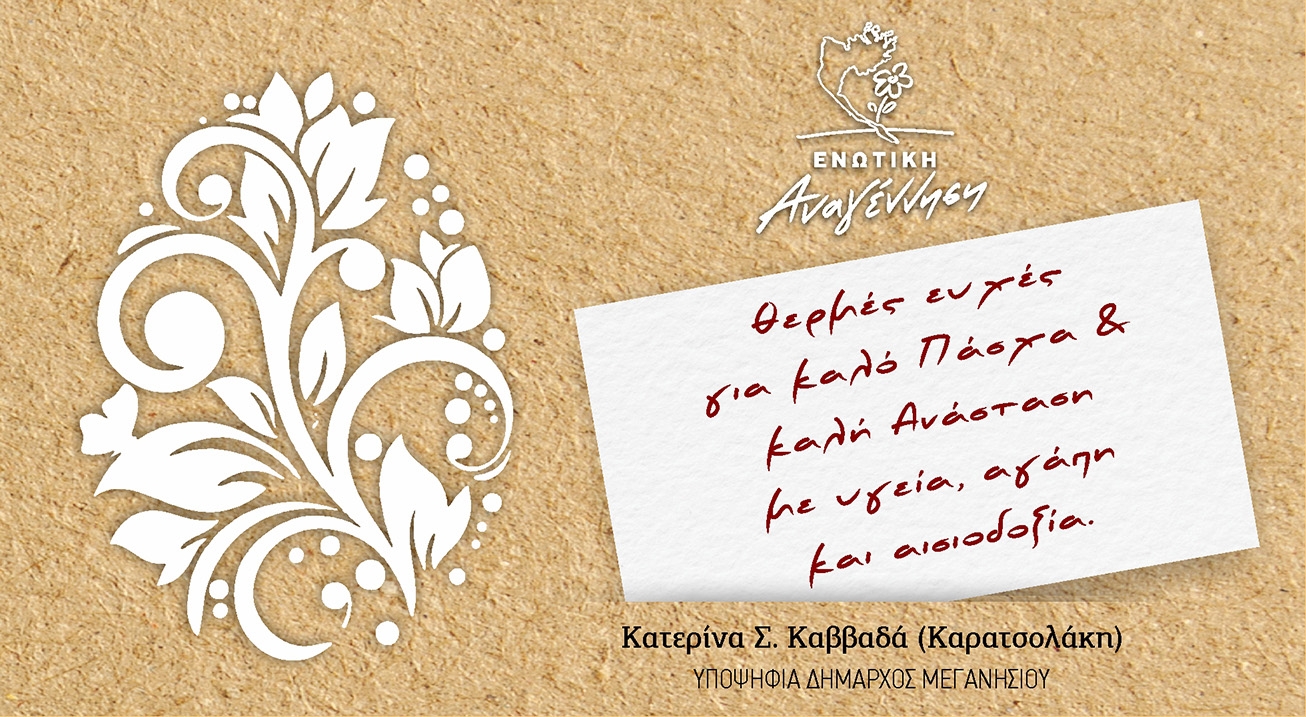 ΕΝΩΤΙΚΗ
Αναγέννηση
θερμές ευχές
για καλό Πάσχα &
καλή Ανάσταση
με υγεία, αγάπη
και αισιοδοξία.
Κατερίνα Σ. Καββαδά (Καρατσολάκη)
ΥΠΟΨΗΦΙΑ ΔΗΜΑΡΧΟΣ ΜΕΓΑΝΗΣΙΟΥ